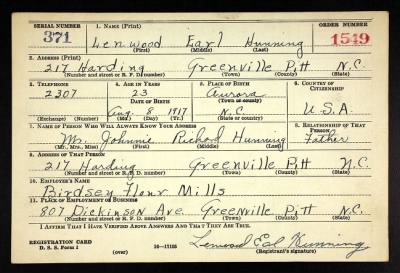 SERIAL NUMBER 1. NAME (Print) ORDER NUMBER
371 Lenwood Earl Hunning 1549
(First) (Middle) (Last)
2. ADDRESS (Print)
217 Harding Greenville Pitt N.C.
(Number and street or R. F. D. number) (Town) (County) (State)
3. TELEPHONE 4. AGE IN YEARS 5. PLACE OF BIRTH 6. COUNTRY OF CITIZENSHIP
2307 23 Aurora
DATE OF BIRTH (Town or county)
Aug. 8 1917 N.C. U.S.A.
(Mo.) (Day) (Yr.) (State or country)
7. NAME OF PERSON WHO WILL ALWAYS KNOW YOUR ADDRESS 8. RELATIONSHIP OF THAT PERSON
Mr. Johnnie Richard Hunning Father
(Mr., Mrs., Miss) (First) (Middle) (Last)
9. ADDRESS OF THAT PERSON
217 Harding Greenville Pitt N.C.
(Number and street or R. F. D. number) (Town) (County) (State)
10. EMPLOYER'S NAME
Birdsey Flour Mills
11. PLACE OF EMPLOYMENT OR BUSINESS
807 Dickinson Ave Greenville Pitt N.C.
(Number and street or R. F. D. number) (Town) (County) (State)
I AFFIRM THAT I HAVE VERIFIED ABOVE ANSWERS AND THAT THEY ARE TRUE.
REGISTRATION CARD
D. S. S. Form 1 (over) 16-17105 Lenwood Earl Hunning
(Registrant's signature)